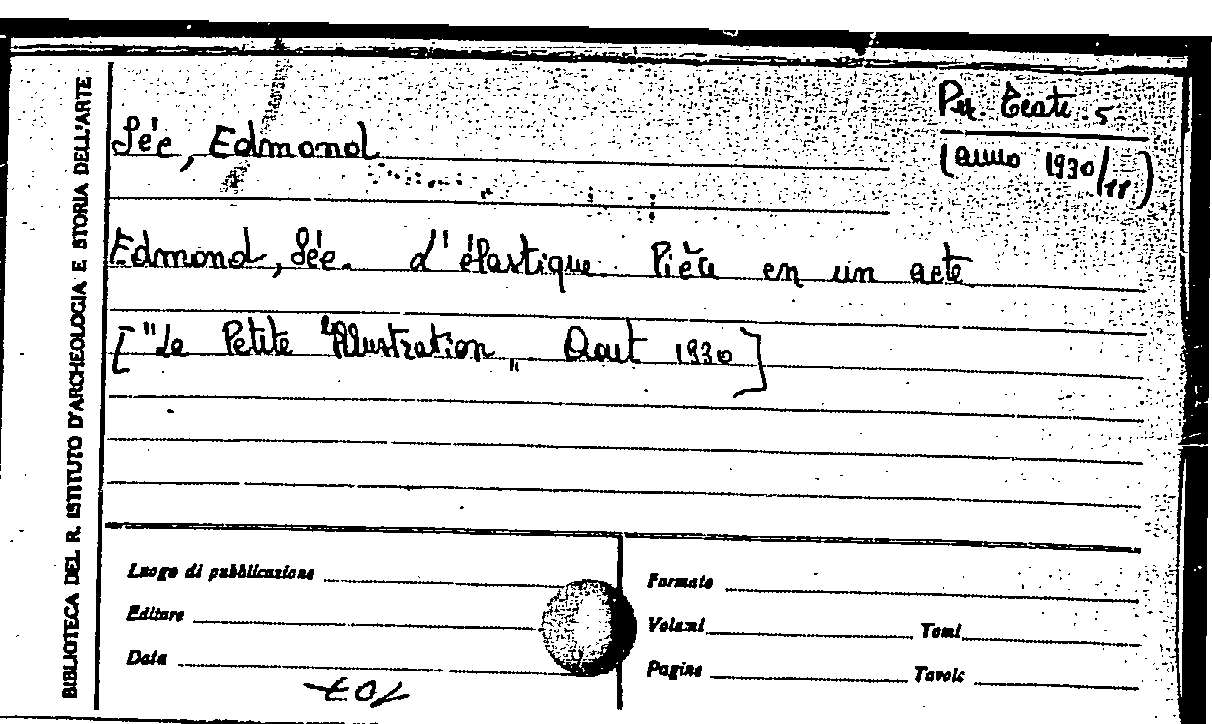 BIBLIOTECA DEL R. ISTITUTO D'ARCHEOLOGIA E STORIA DELL'ARTE
Per. Teatr. 5
(anno 1930/II)
Sée, Edmond
Edmond, Sée. L'élastique. Pièce en un acte
["La Petite Illustration„ Aout 1930]
Luogo di pubblicazione
Editore
Data
Formato
Volumi Tomi
Pagine Tavole